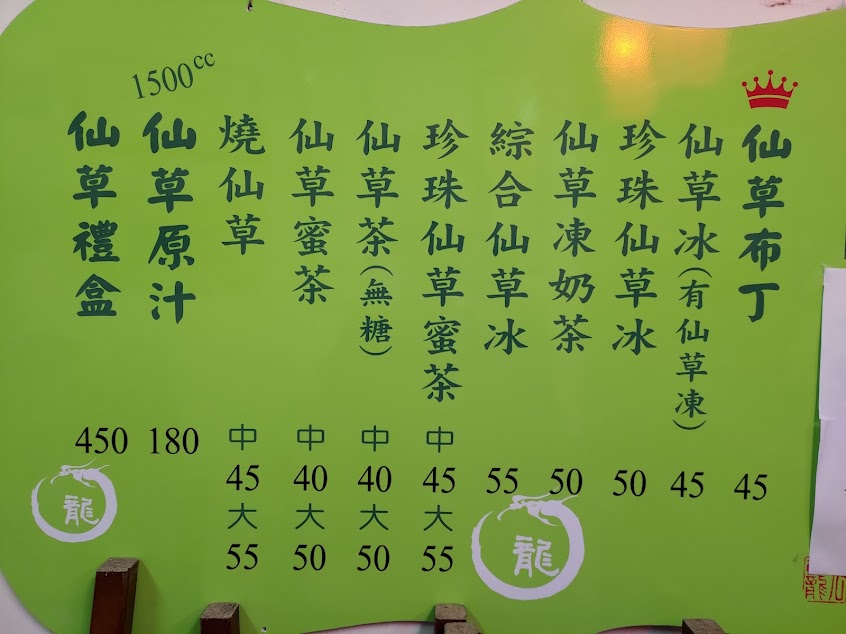 仙草布丁 45
仙草冰(有仙草凍) 45
珍珠仙草冰 50
仙草凍奶茶 50
綜合仙草冰 55
珍珠仙草蜜茶 中 45 大 55
仙草茶(無糖) 中 40 大 50
仙草蜜茶 中 40 大 50
燒仙草 中 45 大 55
1500cc
仙草原汁 180
仙草禮盒 450
龍
龍